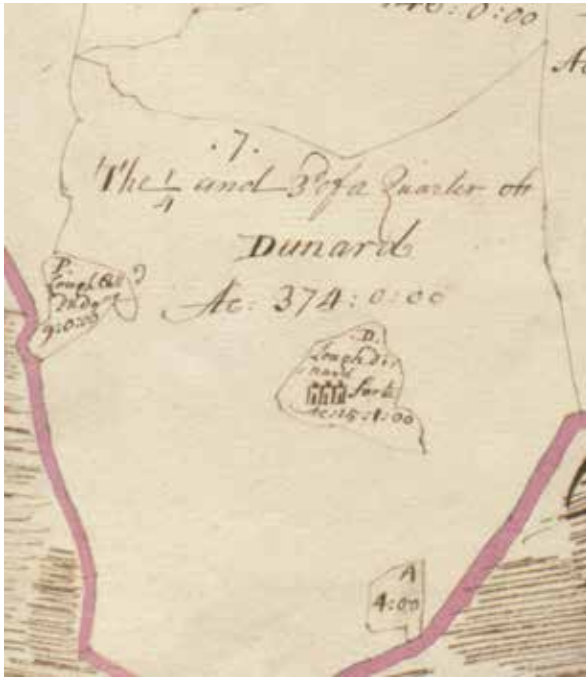 0:00
.7.
The 1/4 and 3d of a Quarter of
Dunard
Ac: 374:0:00
P.
Lough
9:0:00
D.
Lough
fort
Ac: 15:1:00
A
4:00